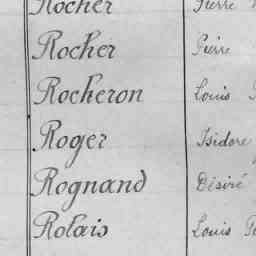 Rocher Pierre
Rocher Pierre
Rocheron Louis
Roger Isidore
Rognand Désiré
Rolais Louis